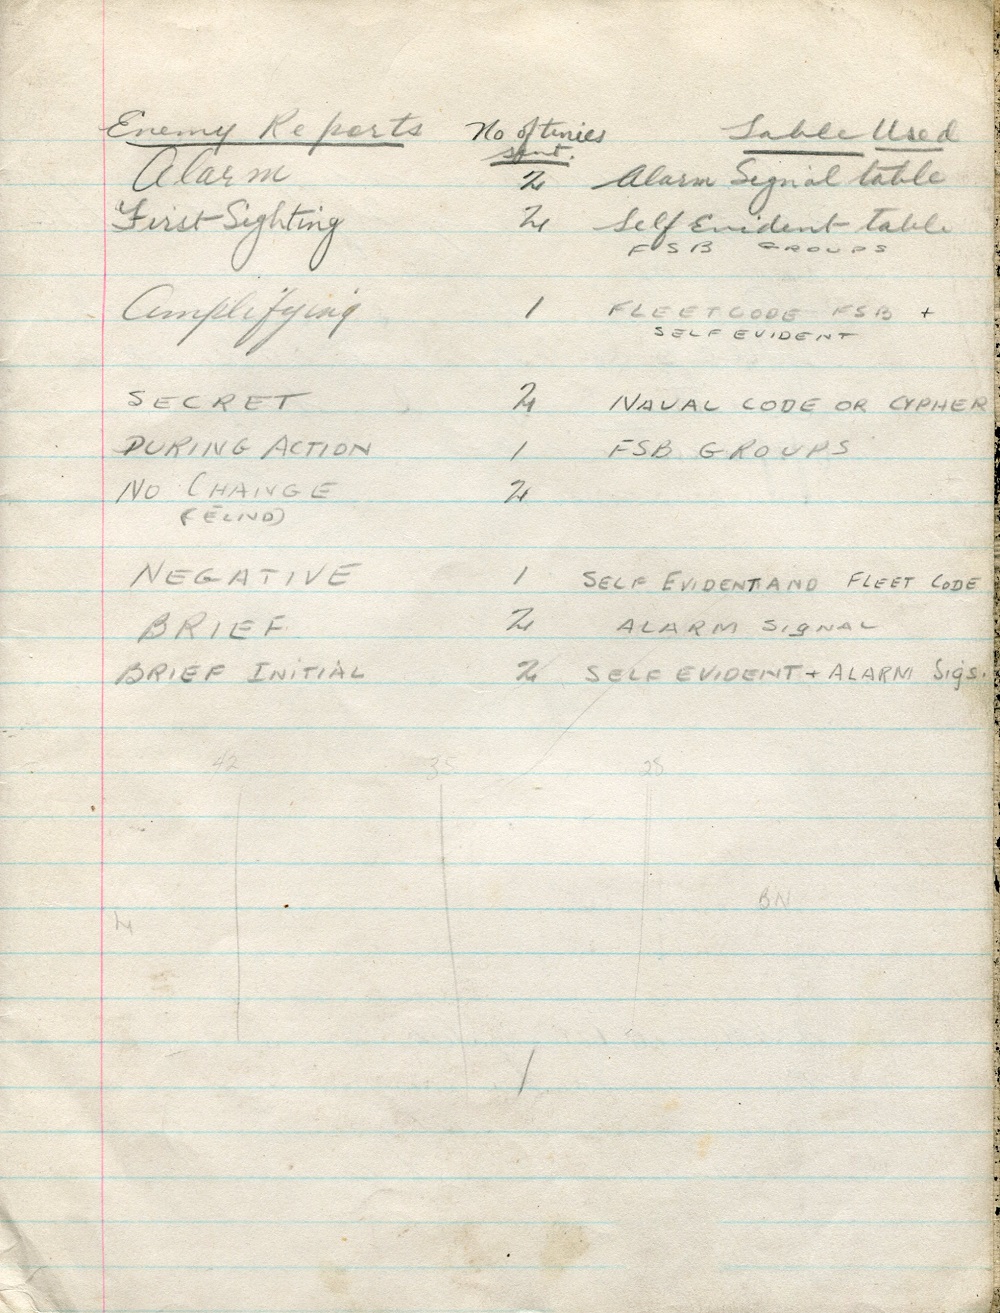 Enemy Reports No of times Table Used
sent.
Alarm 2 Alarm Signal table
First Sighting 2 Self Evident table
FSB GROUPS
Amplifying 1 FLEETCODE FSB +
SELF EVIDENT
SECRET 2 NAVAL CODE OR CYPHER
DURING ACTION 1 FSB GROUPS
NO CHANGE 2
NEGATIVE 1 SELF EVIDENT AND FLEET CODE
BRIEF 2 ALARM SIGNAL
BRIEF INITIAL 2 SELF EVIDENT + ALARM Sigs.
42 35 28
BN